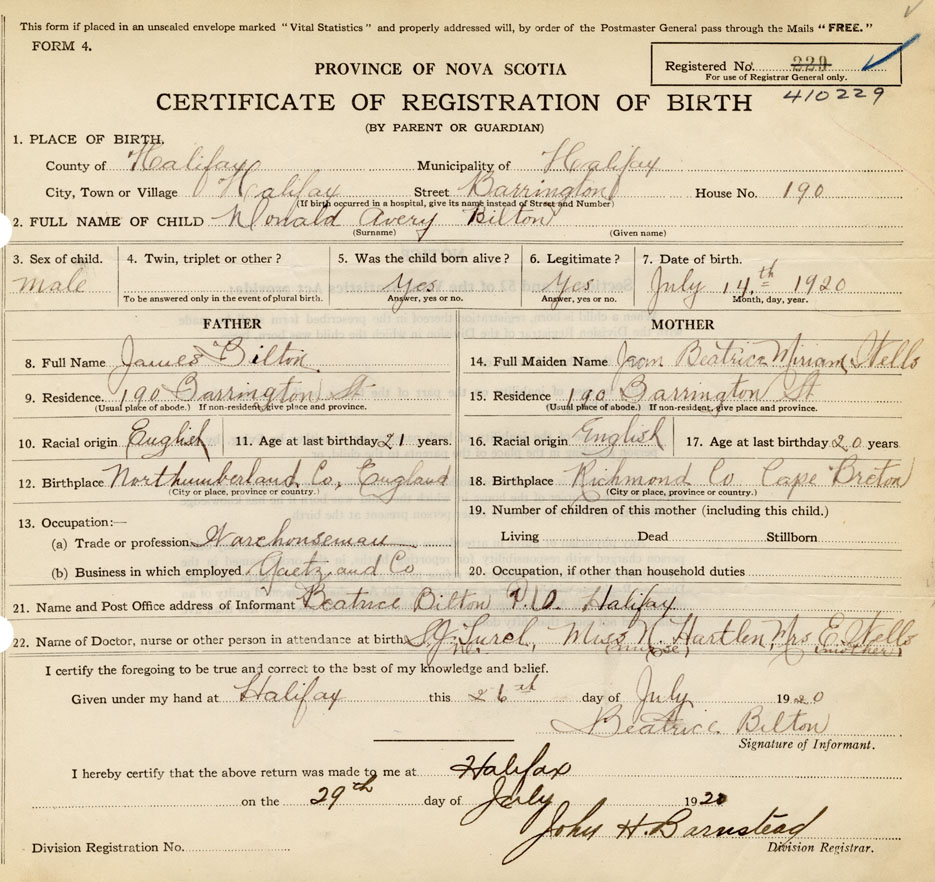 This form if placed in an unsealed envelope marked "Vital Statistics" and properly addressed will, by order of the Postmaster General pass through the Mails "FREE."
FORM 4.
Registered No. 229
For use of Registrar General only.
410229
PROVINCE OF NOVA SCOTIA
CERTIFICATE OF REGISTRATION OF BIRTH
(BY PARENT OR GUARDIAN)
1. PLACE OF BIRTH,
County of Halifax Municipality of Halifax
City, Town or Village Halifax Street Barrington House No. 190
(If birth occurred in a hospital, give its name instead of Street and Number)
2. FULL NAME OF CHILD Donald Avery Bilton
(Surname) (Given name)
3. Sex of child. 4. Twin, triplet or other? 5. Was the child born alive? 6. Legitimate? 7. Date of birth.
male Yes Yes July 14th 1920
To be answered only in the event of plural birth. Answer, yes or no. Answer, yes or no. Month, day, year.
FATHER MOTHER
8. Full Name James Bilton 14. Full Maiden Name Jean Beatrice Miriam Stells
9. Residence. 190 Barrington St 15. Residence 190 Barrington St
(Usual place of abode.) If non-resident, give place and province. (Usual place of abode.) If non-resident, give place and province.
10. Racial origin English 11. Age at last birthday 21 years. 16. Racial origin English 17. Age at last birthday 20 years.
12. Birthplace Northumberland Co, England 18. Birthplace Richmond Co Cape Breton
(City or place, province or country.) (City or place, province or country.)
13. Occupation:— 19. Number of children of this mother (including this child.)
(a) Trade or profession Warehouseman Living Dead Stillborn
(b) Business in which employed Gaetz and Co 20. Occupation, if other than household duties
21. Name and Post Office address of Informant Beatrice Bilton P.O. Halifax
22. Name of Doctor, nurse or other person in attendance at birth S.J. Turel, Miss N. Hartlen, Mrs E. Stells
(nurse) (mother)
I certify the foregoing to be true and correct to the best of my knowledge and belief.
Given under my hand at Halifax this 26th day of July 1920
Beatrice Bilton
Signature of Informant.
I hereby certify that the above return was made to me at Halifax
on the 29th day of July 1920
John H. Barnstead
Division Registration No. Division Registrar.